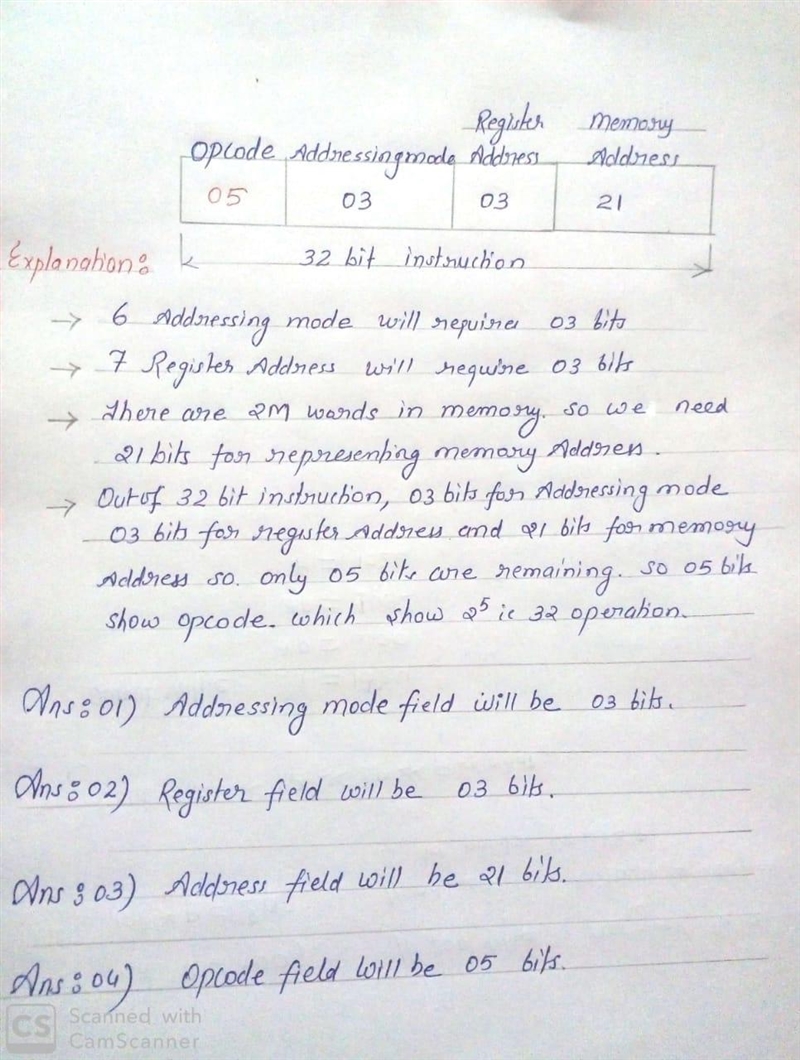 Register Memory
Opcode Addressing mode Address Address
05 03 03 21
Explanation:
32 bit instruction
→ 6 Addressing mode will require 03 bits
→ 7 Register Address will require 03 bits
→ There are 2M words in memory. so we need
21 bits for representing memory Address.
→ Out of 32 bit instruction, 03 bits for Addressing mode
03 bits for register Address and 21 bits for memory
Address so. only 05 bits are remaining. so 05 bits
show opcode. which show 2⁵ ie 32 operation.
Ans: 01) Addressing mode field will be 03 bits.
Ans: 02) Register field will be 03 bits.
Ans: 03) Address field will be 21 bits.
Ans: 04) Opcode field will be 05 bits.
CS Scanned with
CamScanner